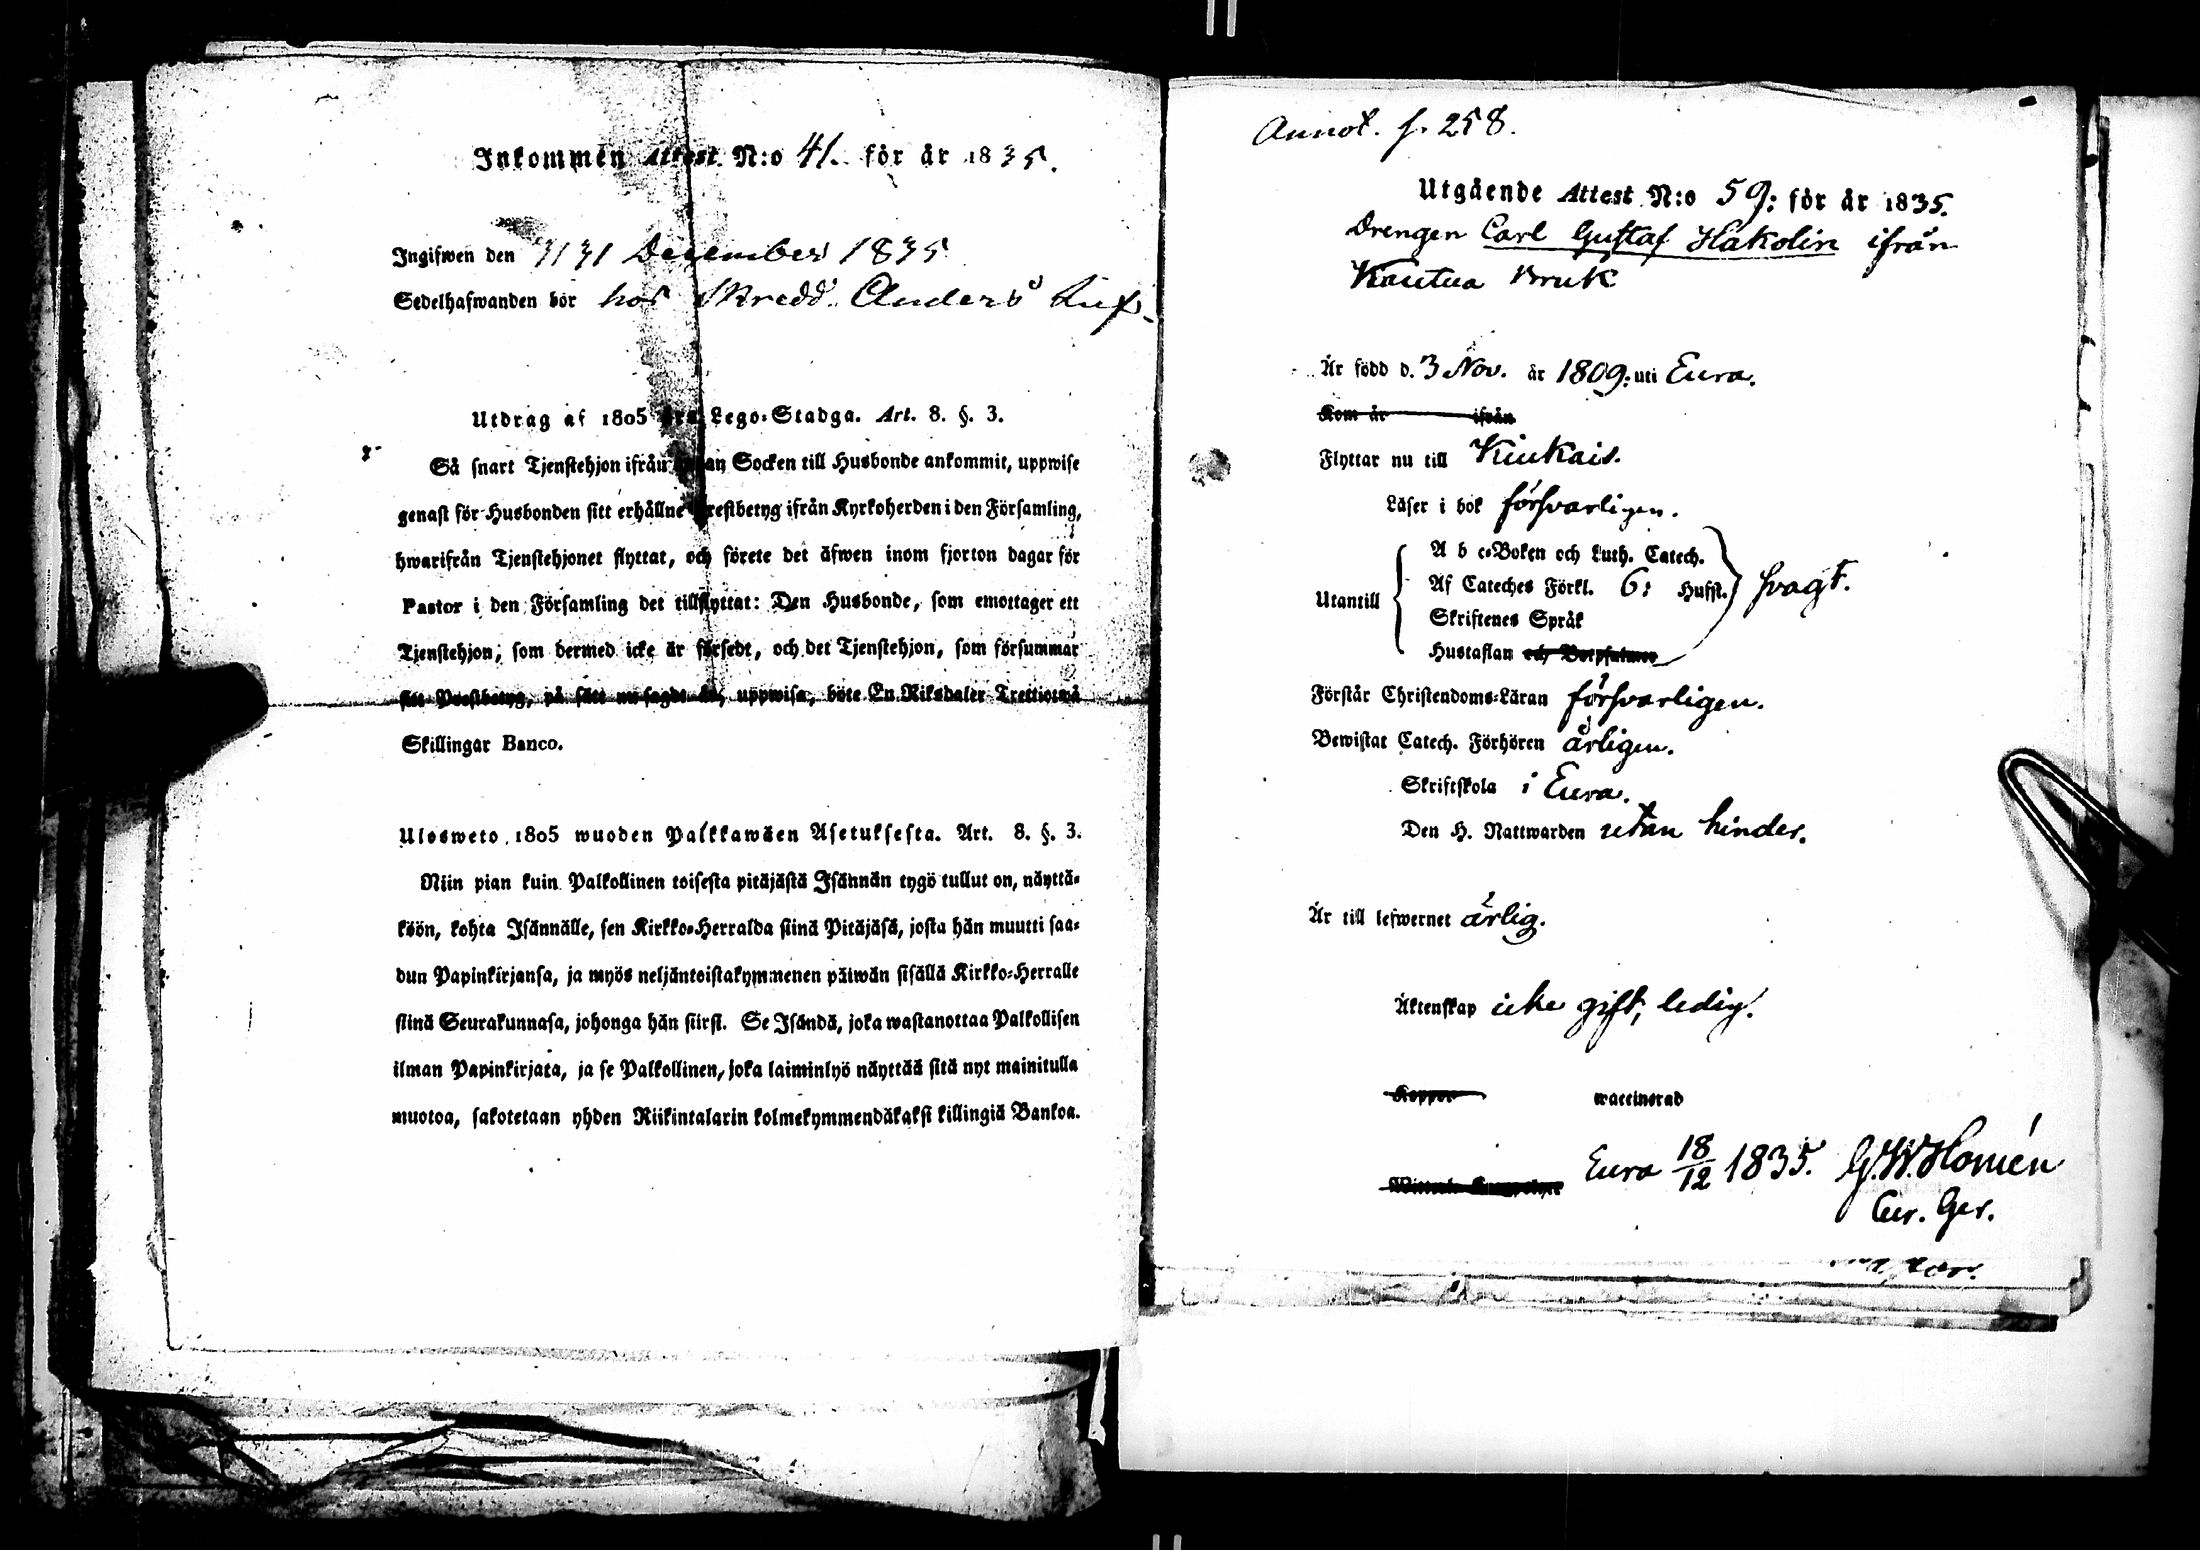 Inkommen Attest. N:o 41. för år 1835.
Ingifwen den 31 December 1835
Sedelhafwanden bör hos Skredd. Anders
Utdrag af 1805 års Lego-Stadga. Art. 8. §. 3.
Så snart Tjenstehjon ifrån annan Socken till Husbonde ankommit, uppwise
genast för Husbonden sitt erhållne Prestbetyg ifrån Kyrkoherden i den Församling,
hwarifrån Tjenstehjonet flyttat, och förete det äfwen inom fjorton dagar för
Pastor i den Församling det tillflyttat: Den Husbonde, som emottager ett
Tjenstehjon, som dermed icke är försedt, och det Tjenstehjon, som försummar
sitt Prestbetyg, på sätt nu sagdt är, uppwisa, böte En Riksdaler Trettiotwå
Skillingar Banco.
Ulosweto 1805 wuoden Palkkawäen Asetuksesta. Art. 8. §. 3.
Niin pian kuin Palkollinen toisesta pitäjästä Isännän tygö tullut on, näyttä-
köön, kohta Isännälle, sen Kirkko-Herralda siinä Pitäjäsä, josta hän muutti saa-
dun Papinkirjansa, ja myös neljäntoistakymmenen päiwän sisällä Kirkko-Herralle
siinä Seurakunnasa, johonga hän siirsi. Se Isändä, joka wastanottaa Palkollisen
ilman Papinkirjata, ja se Palkollinen, joka laiminlyö näyttää sitä nyt mainitulla
muotoa, sakotetaan yhden Riikintalarin kolmekymmendäkaksi killingiä Bankoa.
Annot. f. 258.
Utgående Attest N:o 59: för år 1835.
Drengen Carl Gustaf Hakolin ifrån
Kautua Bruk
Är född d. 3 Nov. år 1809: uti Eura.
Kom år ifrån
Flyttar nu till Kiukais.
Läser i bok försvarligen.
A b c-Boken och Luth. Catech.
Af Cateches Förkl. 6: Hufst. svagt.
Utantill
Skriftenes Språk
Hustaflan och Botpsalmer
Förstår Christendoms-Läran försvarligen.
Bewistat Catech. Förhören årligen.
Skriftskola i Eura.
Den H. Nattwarden utan hinder.
Är till lefwernet ärlig.
Äktenskap icke gift, ledig.
Koppor waccinerad
Eura 18/12 1835. G.W. Homén
Cur. Ger.